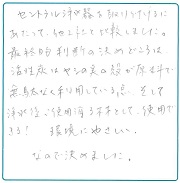 セントラル浄水器を取り付けるに
あたって、他社とも比較しました。
最終的な判断の決めどころは、
活性炭はヤシの実の殻が原料で
無駄なく利用している点、そして
浄水後、使用済みネネとして、使用で
きる！ 環境にやさしい、
なので決めました。